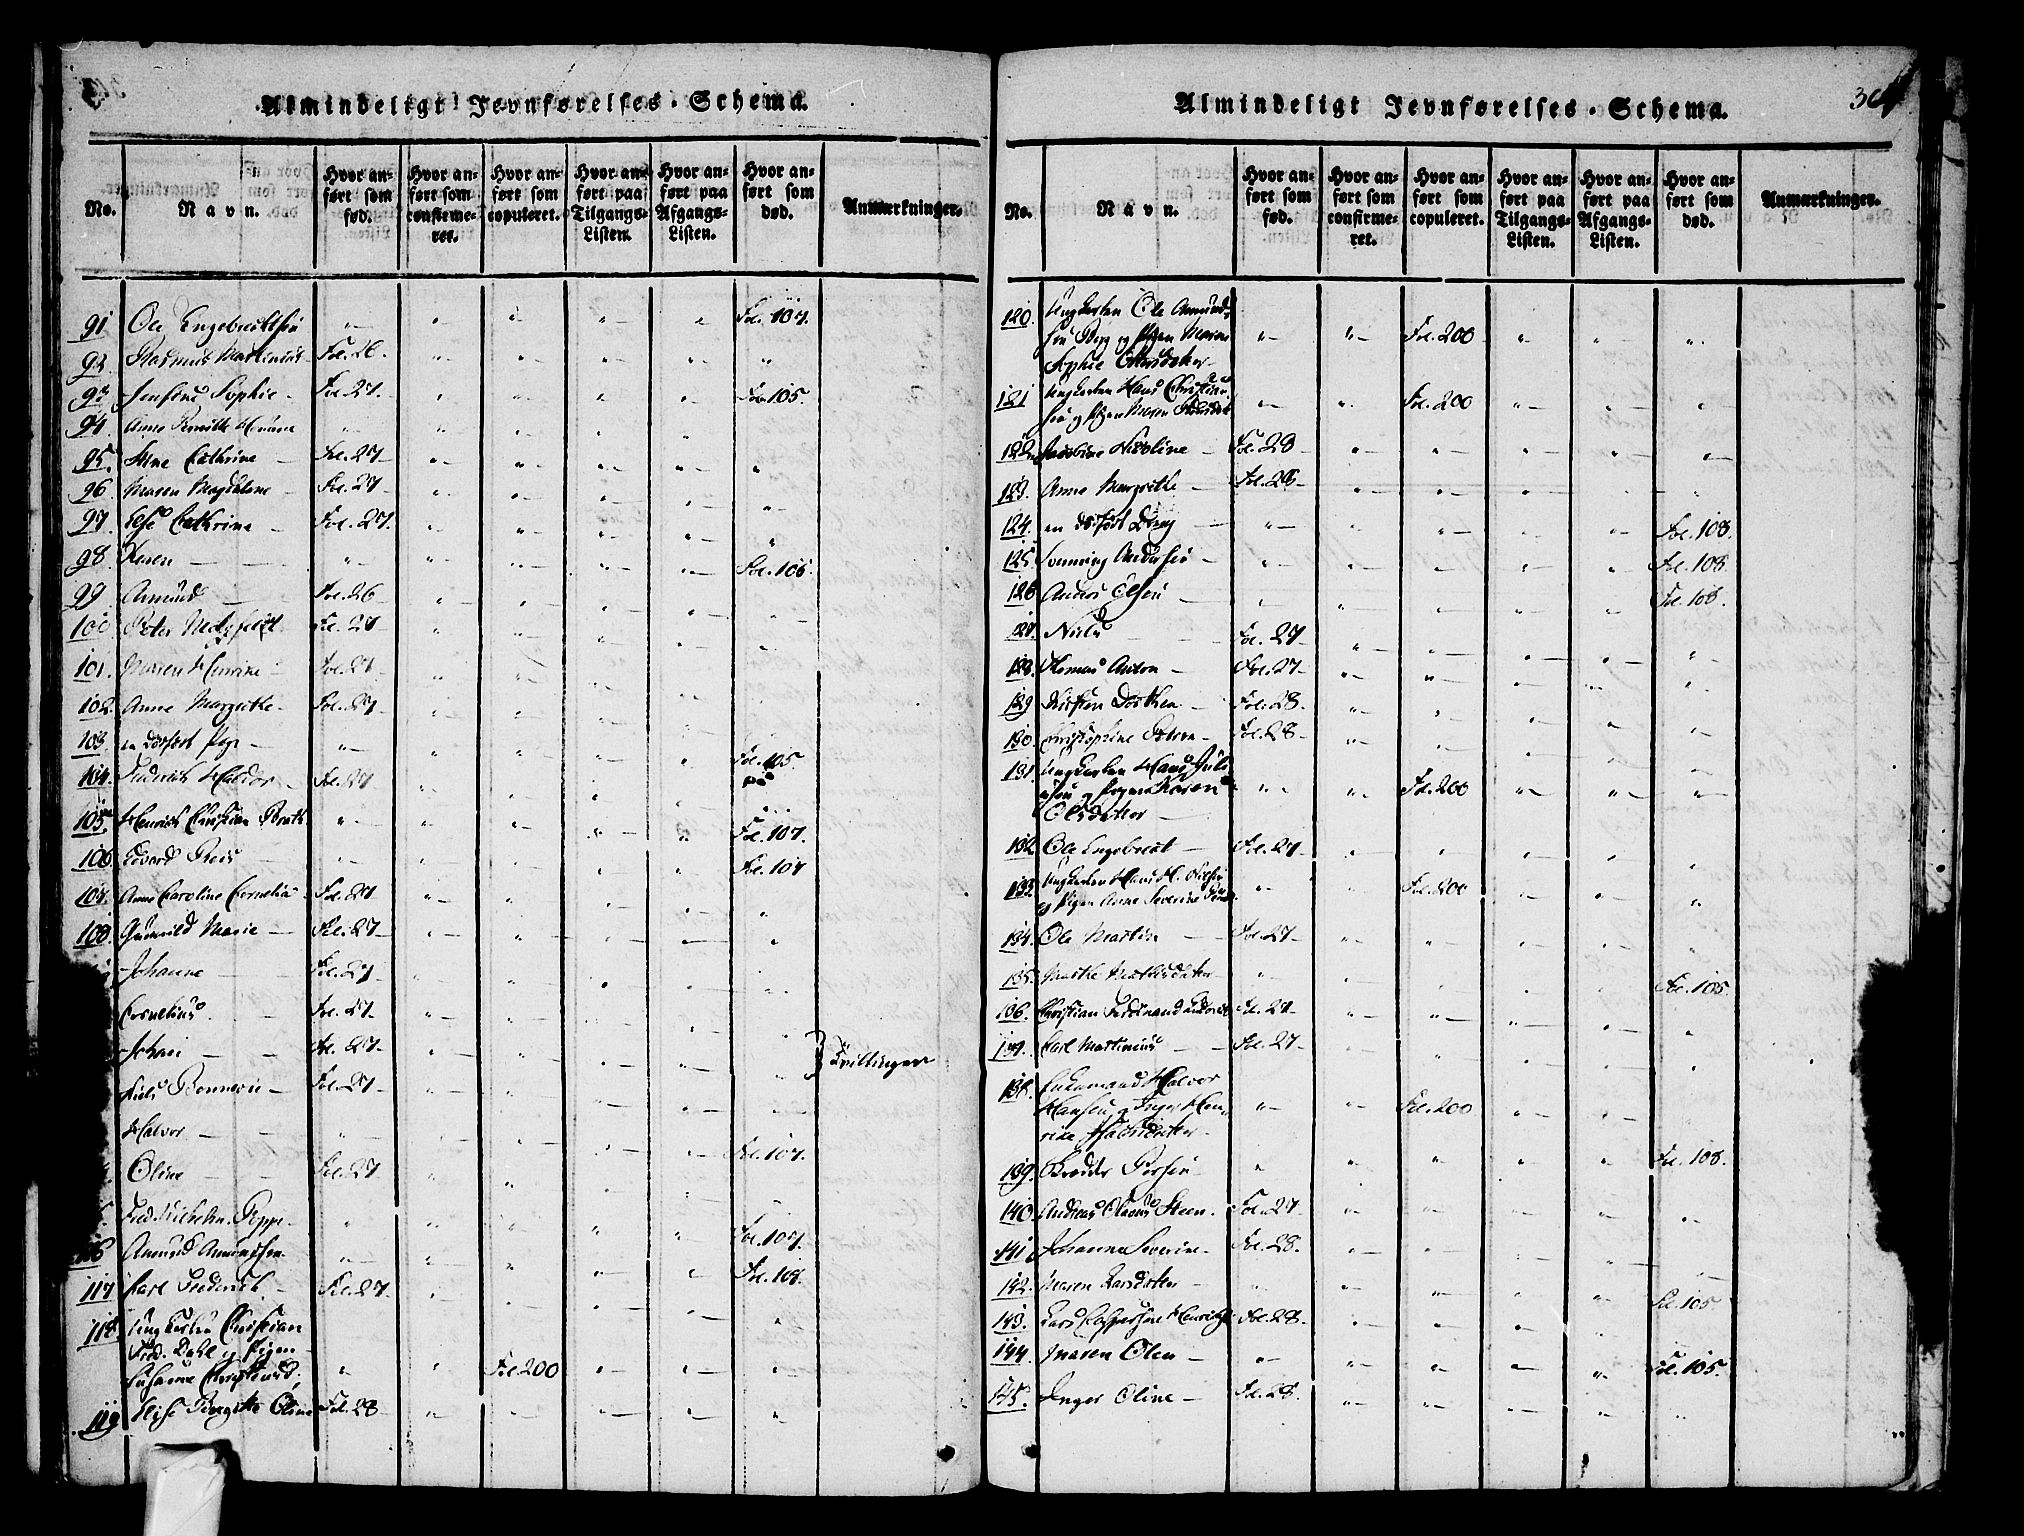 Almindeligt Jevnførelses-Schema.
No.
Navn.
Hvor anført som fød.
Hvor anført som confirmeret.
Hvor anført som copuleret.
Hvor anført paa Tilgangs-Listen.
Hvor anført paa Afgangs-Listen.
Hvor anført som død.
Anmærkninger.
91 Ole Engebrettsen " " " " " Fol. 107.
92 Rasmus Martinius Fol. 26 " " " " "
93 Jensine Sophie Fol. 27 " " " " Fol. 105
94 Anne Pernille " " " " "
95. Stine Cathrine Fol. 27 " " " " "
96 Maren Magdalene Fol. 27 " " " " "
97 Else Cathrine Fol. 27. " " " " "
98 Karen " " " " " Fol. 106
99 Amund Fol. 26 " " " " "
100 Peter Fol. 27 " " " " "
101. Maren Fol. 27 " " " " "
102. Anne Margrethe Fol. 27 " " " " "
103 en dødfødt Pige " " " " " Fol. 105
104. Frederich Haldor Fol. 27 " " " "
105. Henrich Christian " " " " " Fol. 107.
106 Edvard " " " " " Fol. 107
107. Anne Caroline Cornelia Fol. 27 " " " " "
108. Gunnild Marie Fol. 27 " " " " "
Johanne Fol. 27 " " " " "
Cornelius Fol. 27 " " " " "
Johan Fol. 27 " " " " " } Tvillinger
Niels Fol. 27 " " " " "
Halvor " " " " " Fol. 107.
Oline Fol. 27 " " " "
Fred. Wilhelm " " " " " Fol. 107.
116 Amund Amundsen " " " " " Fol. 108.
117 Carl Frederich Fol. 27 " " " " "
118. Ungkarlen Christian
Fred. Dahl og Pigen
" " Fol. 200 " " "
119 Else Birgitte Oline Fol. 28 " " " " "
Almindeligt Jevnførelses-Schema.
304
No.
Navn.
Hvor anført som fød.
Hvor anført som confirmeret.
Hvor anført som copuleret.
Hvor anført paa Tilgangs-Listen.
Hvor anført paa Afgangs-Listen.
Hvor anført som død.
Anmærkninger.
120. Ungkarlen Ole Amund-
sen Berg og Pigen Maren " " Fol. 200 " " "
Sophie
121 Ungkarlen Hans Christian-
sen og Pigen Maren " " Fol. 200 " " "
122. Jacobine Nicoline Fol. 28 " " " " "
123. Anne Margrethe Fol. 28 " " " " "
124. en dødfødt Dreng " " " " " Fol. 108.
125. Svenning Andersen " " " " " Fol. 108
126 Anders Olsen " " " " " Fol. 108.
127. Niels Fol. 27 " " " " "
128. Thomas Anton Fol. 27 " " " " "
129 Kirsten Dorthea Fol. 28 " " " " "
130. Christophine Fol. 28 " " " " "
131. Ungkarlen Hans Juli
usen og Pigen Karen " " Fol. 200 " " "
Olsdatter
132 Ole Engebret Fol. 27 " " " " "
133. Ungkarlen Hans H. Nielsen
og Pigen Anne Severine " " Fol. 200 " " "
134. Ole Martin Fol. 27 " " " " "
135. Marthe " " " " " Fol. 105
136. Christian Ferdinand Fol. 27 " " " " "
137. Carl Martinius Fol. 27 " " " " "
138. Enkemand Halvor
Hansen og Inger Hen- " " Fol. 200 " " "
rine
139. " " " " " Fol. 108.
140. Andreas Steen. Fol. 27 " " " " "
141. Johanne Severine Fol. 28. " " " " "
142. Maren Larsdatter " " " " " Fol. 105
143. Lars Fol. 28 " " " " "
144. Maren Olea " " " " " Fol. 105.
145. Inger Oline Fol. 28. " " " " "